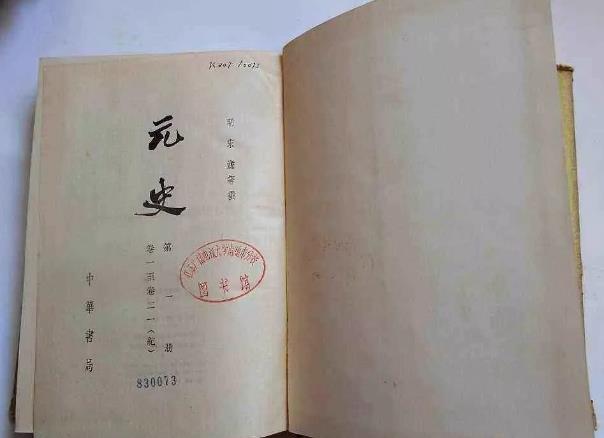 明 宋 濂等撰
元史
第一册
卷一至卷二一(紀)
中華書局
图书馆
830073